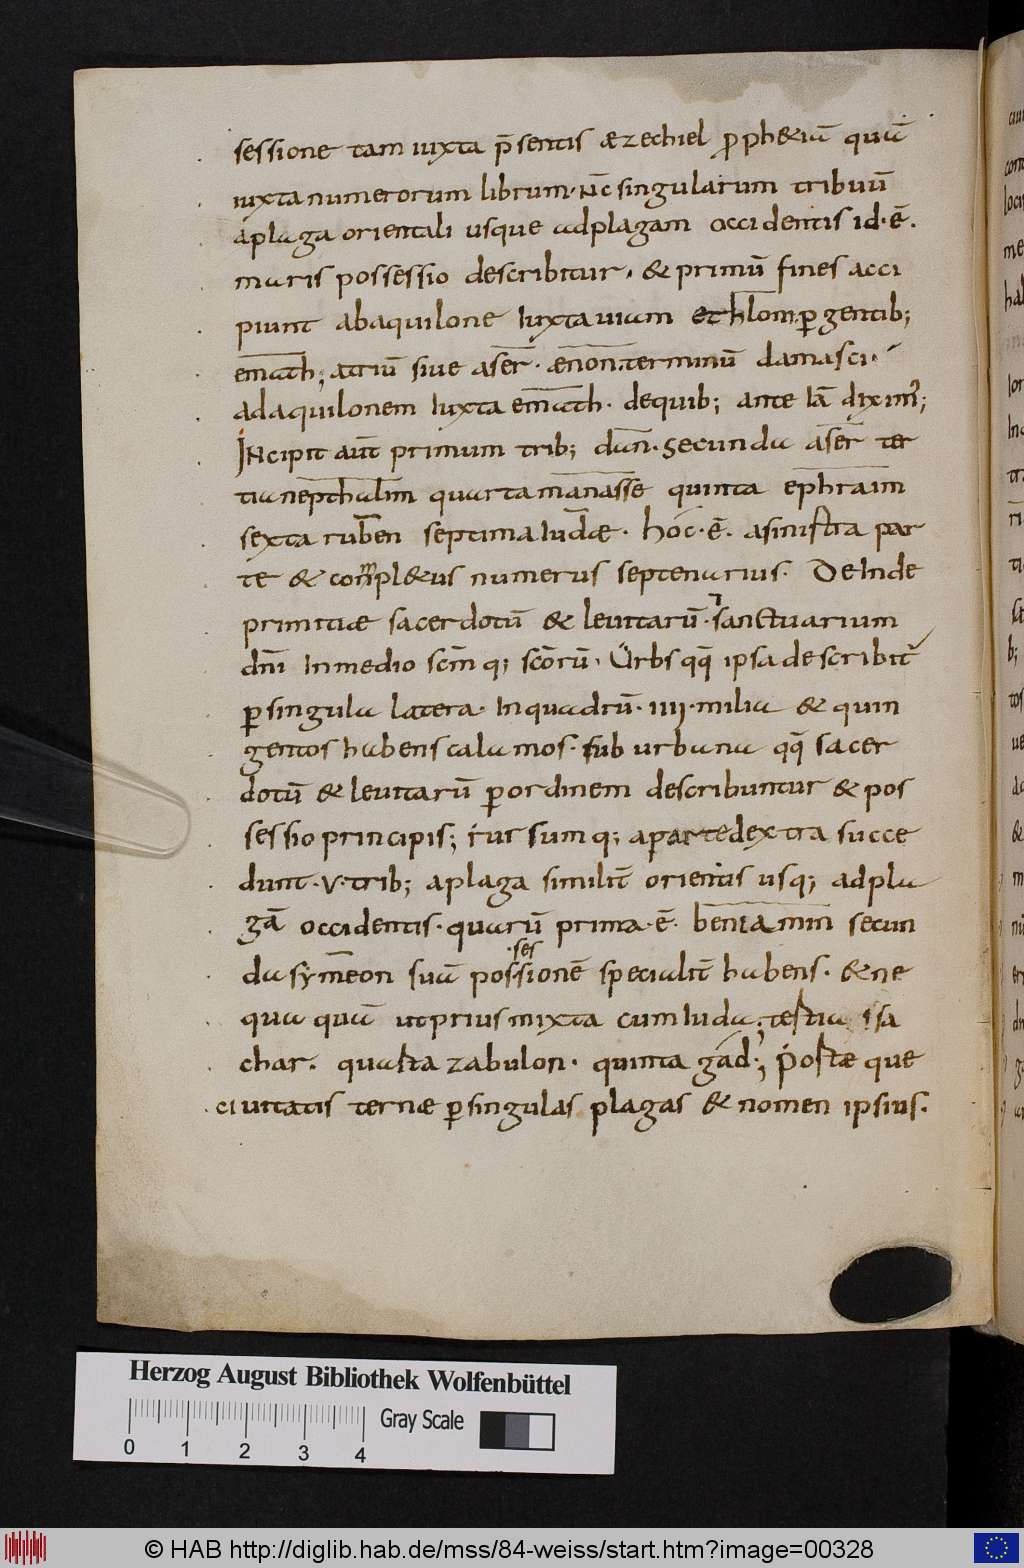 sessione tam iuxta p̄sentis æzechiel ꝓph&iā quā
iuxta numerorum librum· Nc̄ singularum tribuū
aplaga orientali usque adplagam occidentis id·ē·
maris possessio describitur, & primū fines acci
piunt abaquilone Iuxta uiam ethlom ꝑgentib;
emath; atriū siue aser̄· ænon·terminū damasci·
adaquilonem Iuxta emath· dequib; ante Iā diximꝰ;
INcipit aut̄ primum trib; dan̄· secunda aser̄ ter
tia nepthalim quarta manasse quinta ephraim
sexta rub̄en septima Iudæ· hoc·ē· asinistra par
te & compl&us numerus septenarius· DeInde
primitiæ sacerdotū & leuitarū· sanctuarium
dn̄i Inmedio scm̄ q; scōrū· Urbs qq̄ ipsa describit̄
ꝑsingula latera· Inquadrū· IIII· milia & quin
gentos habens calamos· sub urbana qq̄ sacer
dotū & leuitarū ꝑordinem describuntur & pos
sessio principis; rursum q; apartedextra succe
dunt·V·trib; aplaga similit̄ orientis usq; adpla
gā occidentis· quarū prima·ē· beniamin secun
da symeon suā pos·sionē specialit̄ habens· & ne
·ses
qua quā ut prius mixta cum Iuda; tertia isa
char· quarta zabulon· quinta gad·; portæ que
ciuitatis ternæ ꝑsingulas plagas & nomen ipsius·
Herzog August Bibliothek Wolfenbüttel
Gray Scale
0 1 2 3 4
© HAB http://diglib.hab.de/mss/84-weiss/start.htm?image=00328